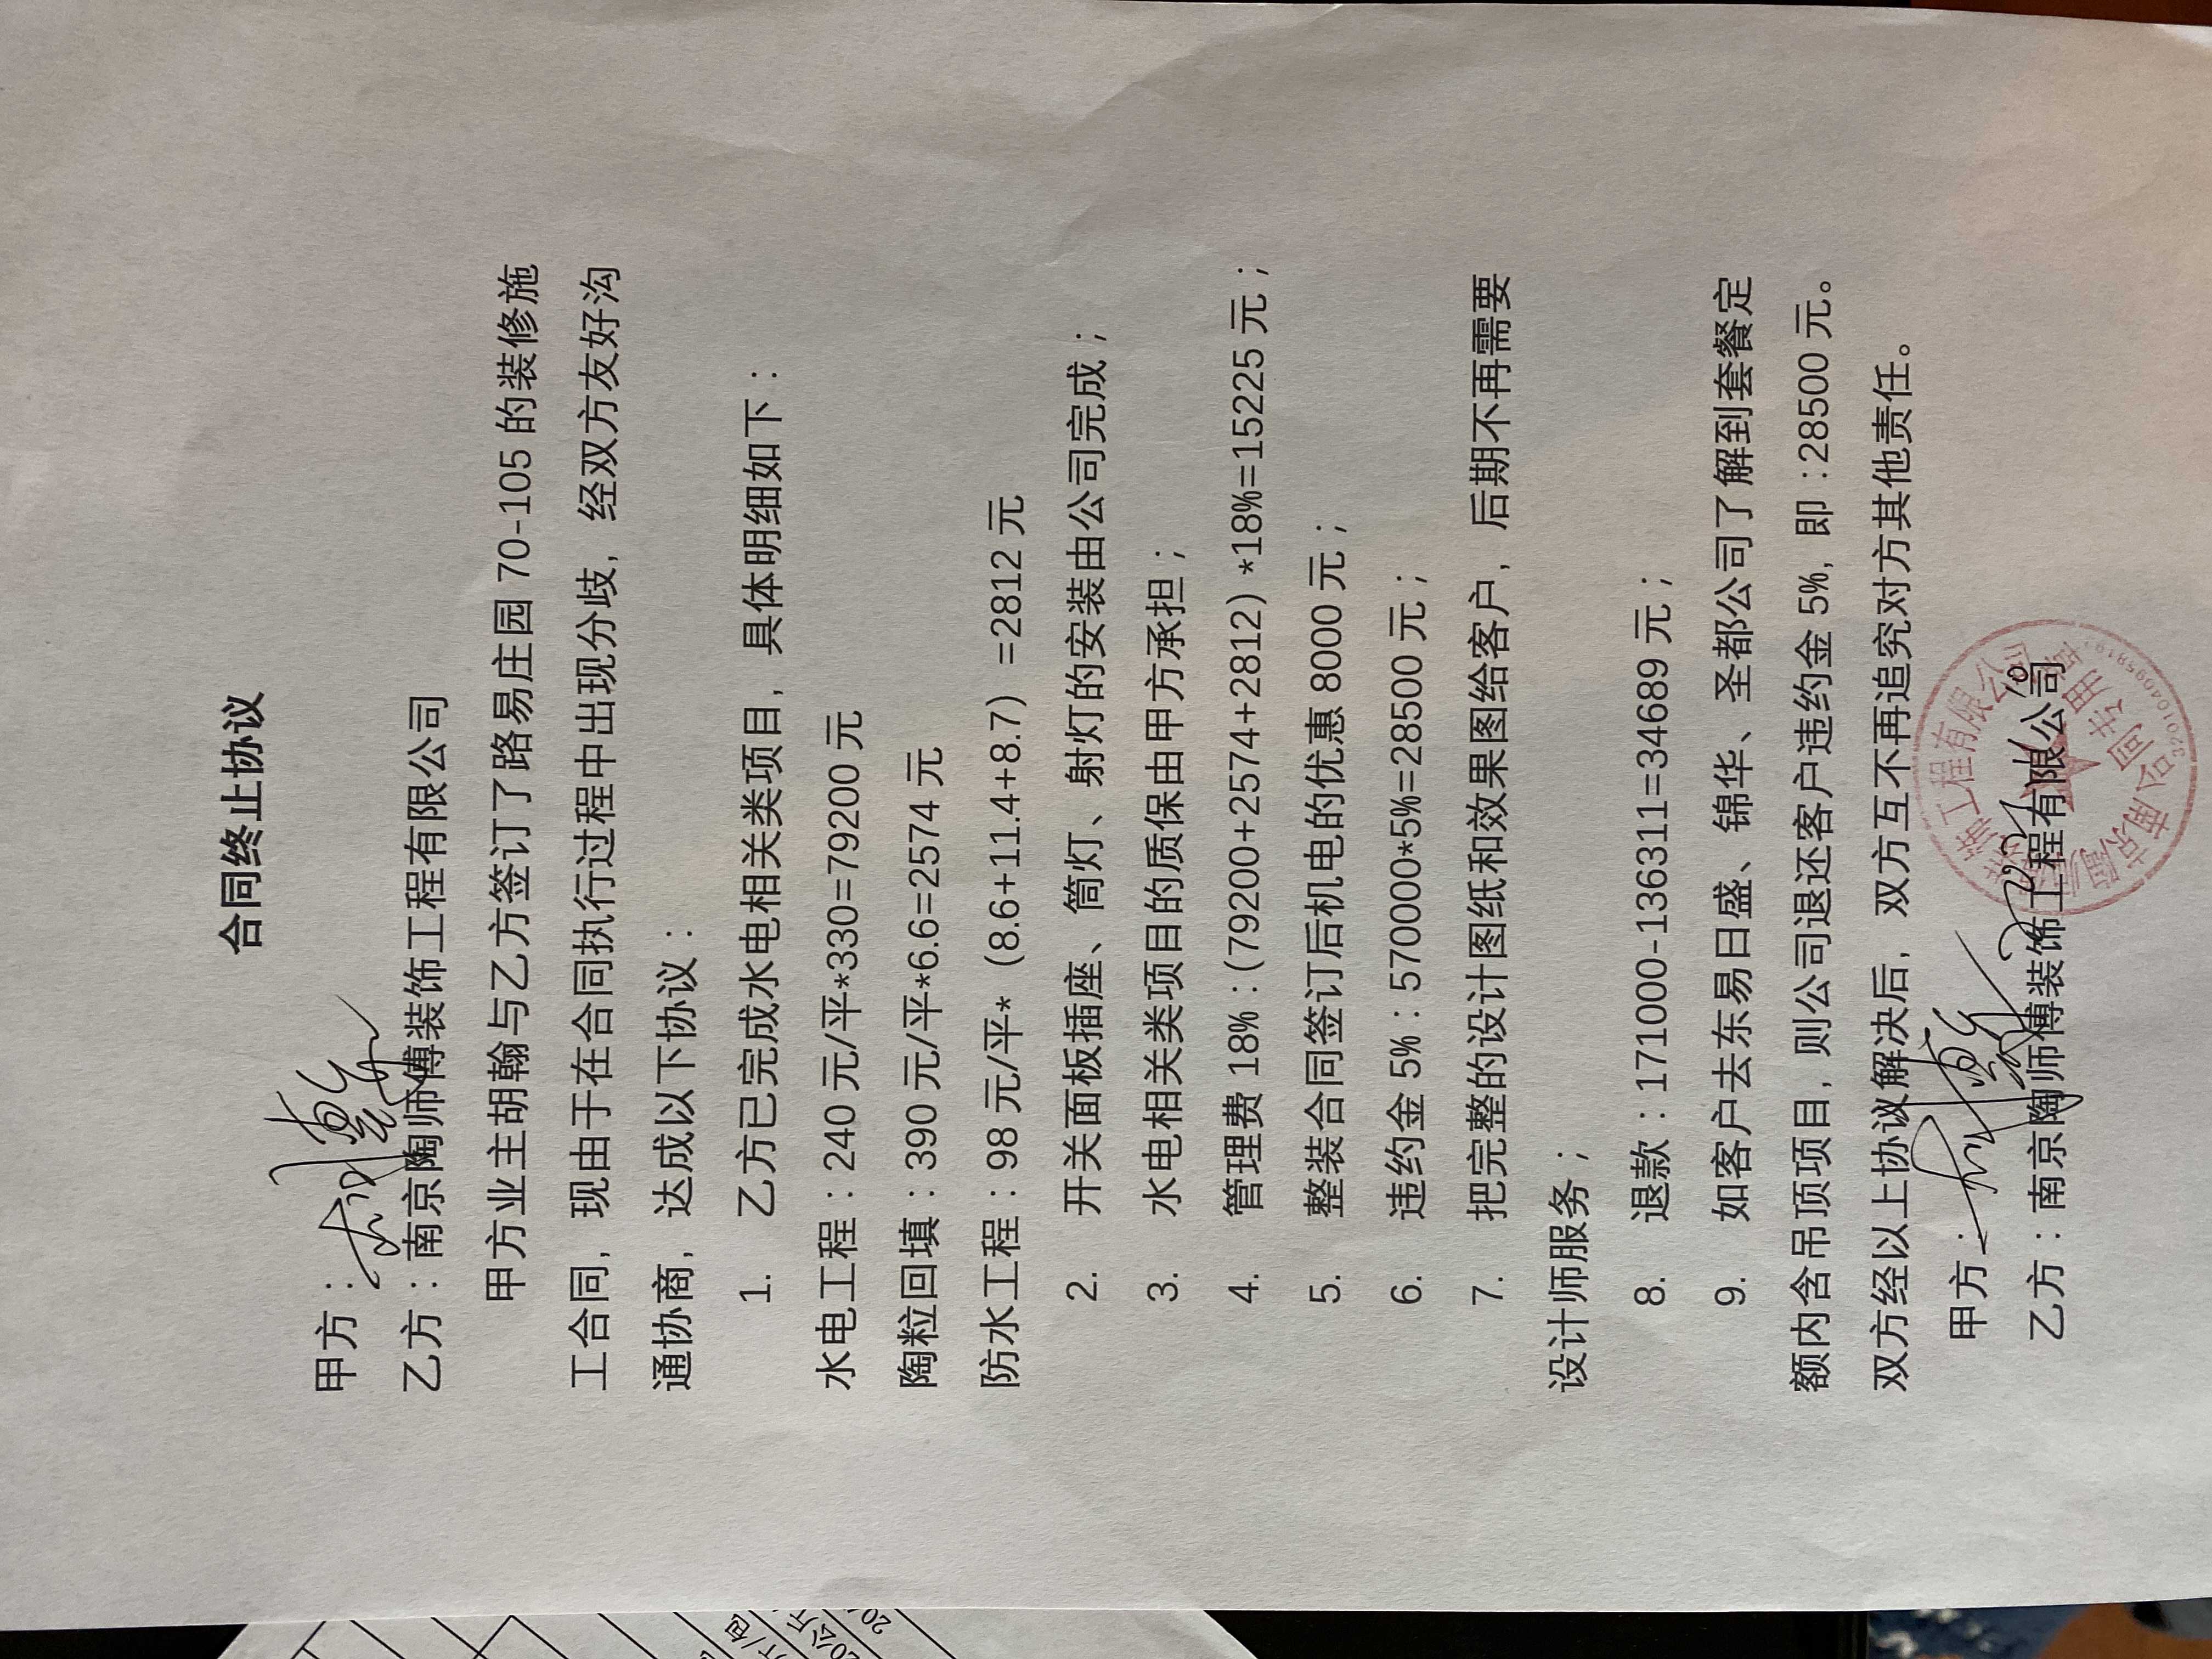 合同终止协议
甲方：
乙方：南京陶师傅装饰工程有限公司
甲方业主胡翰与乙方签订了路易庄园 70-105 的装修施
工合同，现由于在合同执行过程中出现分歧，经双方友好沟
通协商，达成以下协议：
1. 乙方已完成水电相关类项目，具体明细如下：
水电工程：240 元/平*330=79200 元
陶粒回填：390 元/平*6.6=2574 元
防水工程：98 元/平*（8.6+11.4+8.7）=2812 元
2. 开关面板插座、筒灯、射灯的安装由公司完成；
3. 水电相关类项目的质保由甲方承担；
4. 管理费 18%：（79200+2574+2812）*18%=15225 元；
5. 整装合同签订后机电的优惠 8000 元；
6. 违约金 5%：570000*5%=28500 元；
7. 把完整的设计图纸和效果图给客户，后期不再需要
设计师服务；
8. 退款：171000-136311=34689 元；
9. 如客户去东易日盛、锦华、圣都公司了解到套餐定
额内含吊顶项目，则公司退还客户违约金 5%，即：28500 元。
双方经以上协议解决后，双方互不再追究对方其他责任。
甲方：
乙方：南京陶师傅装饰工程有限公司